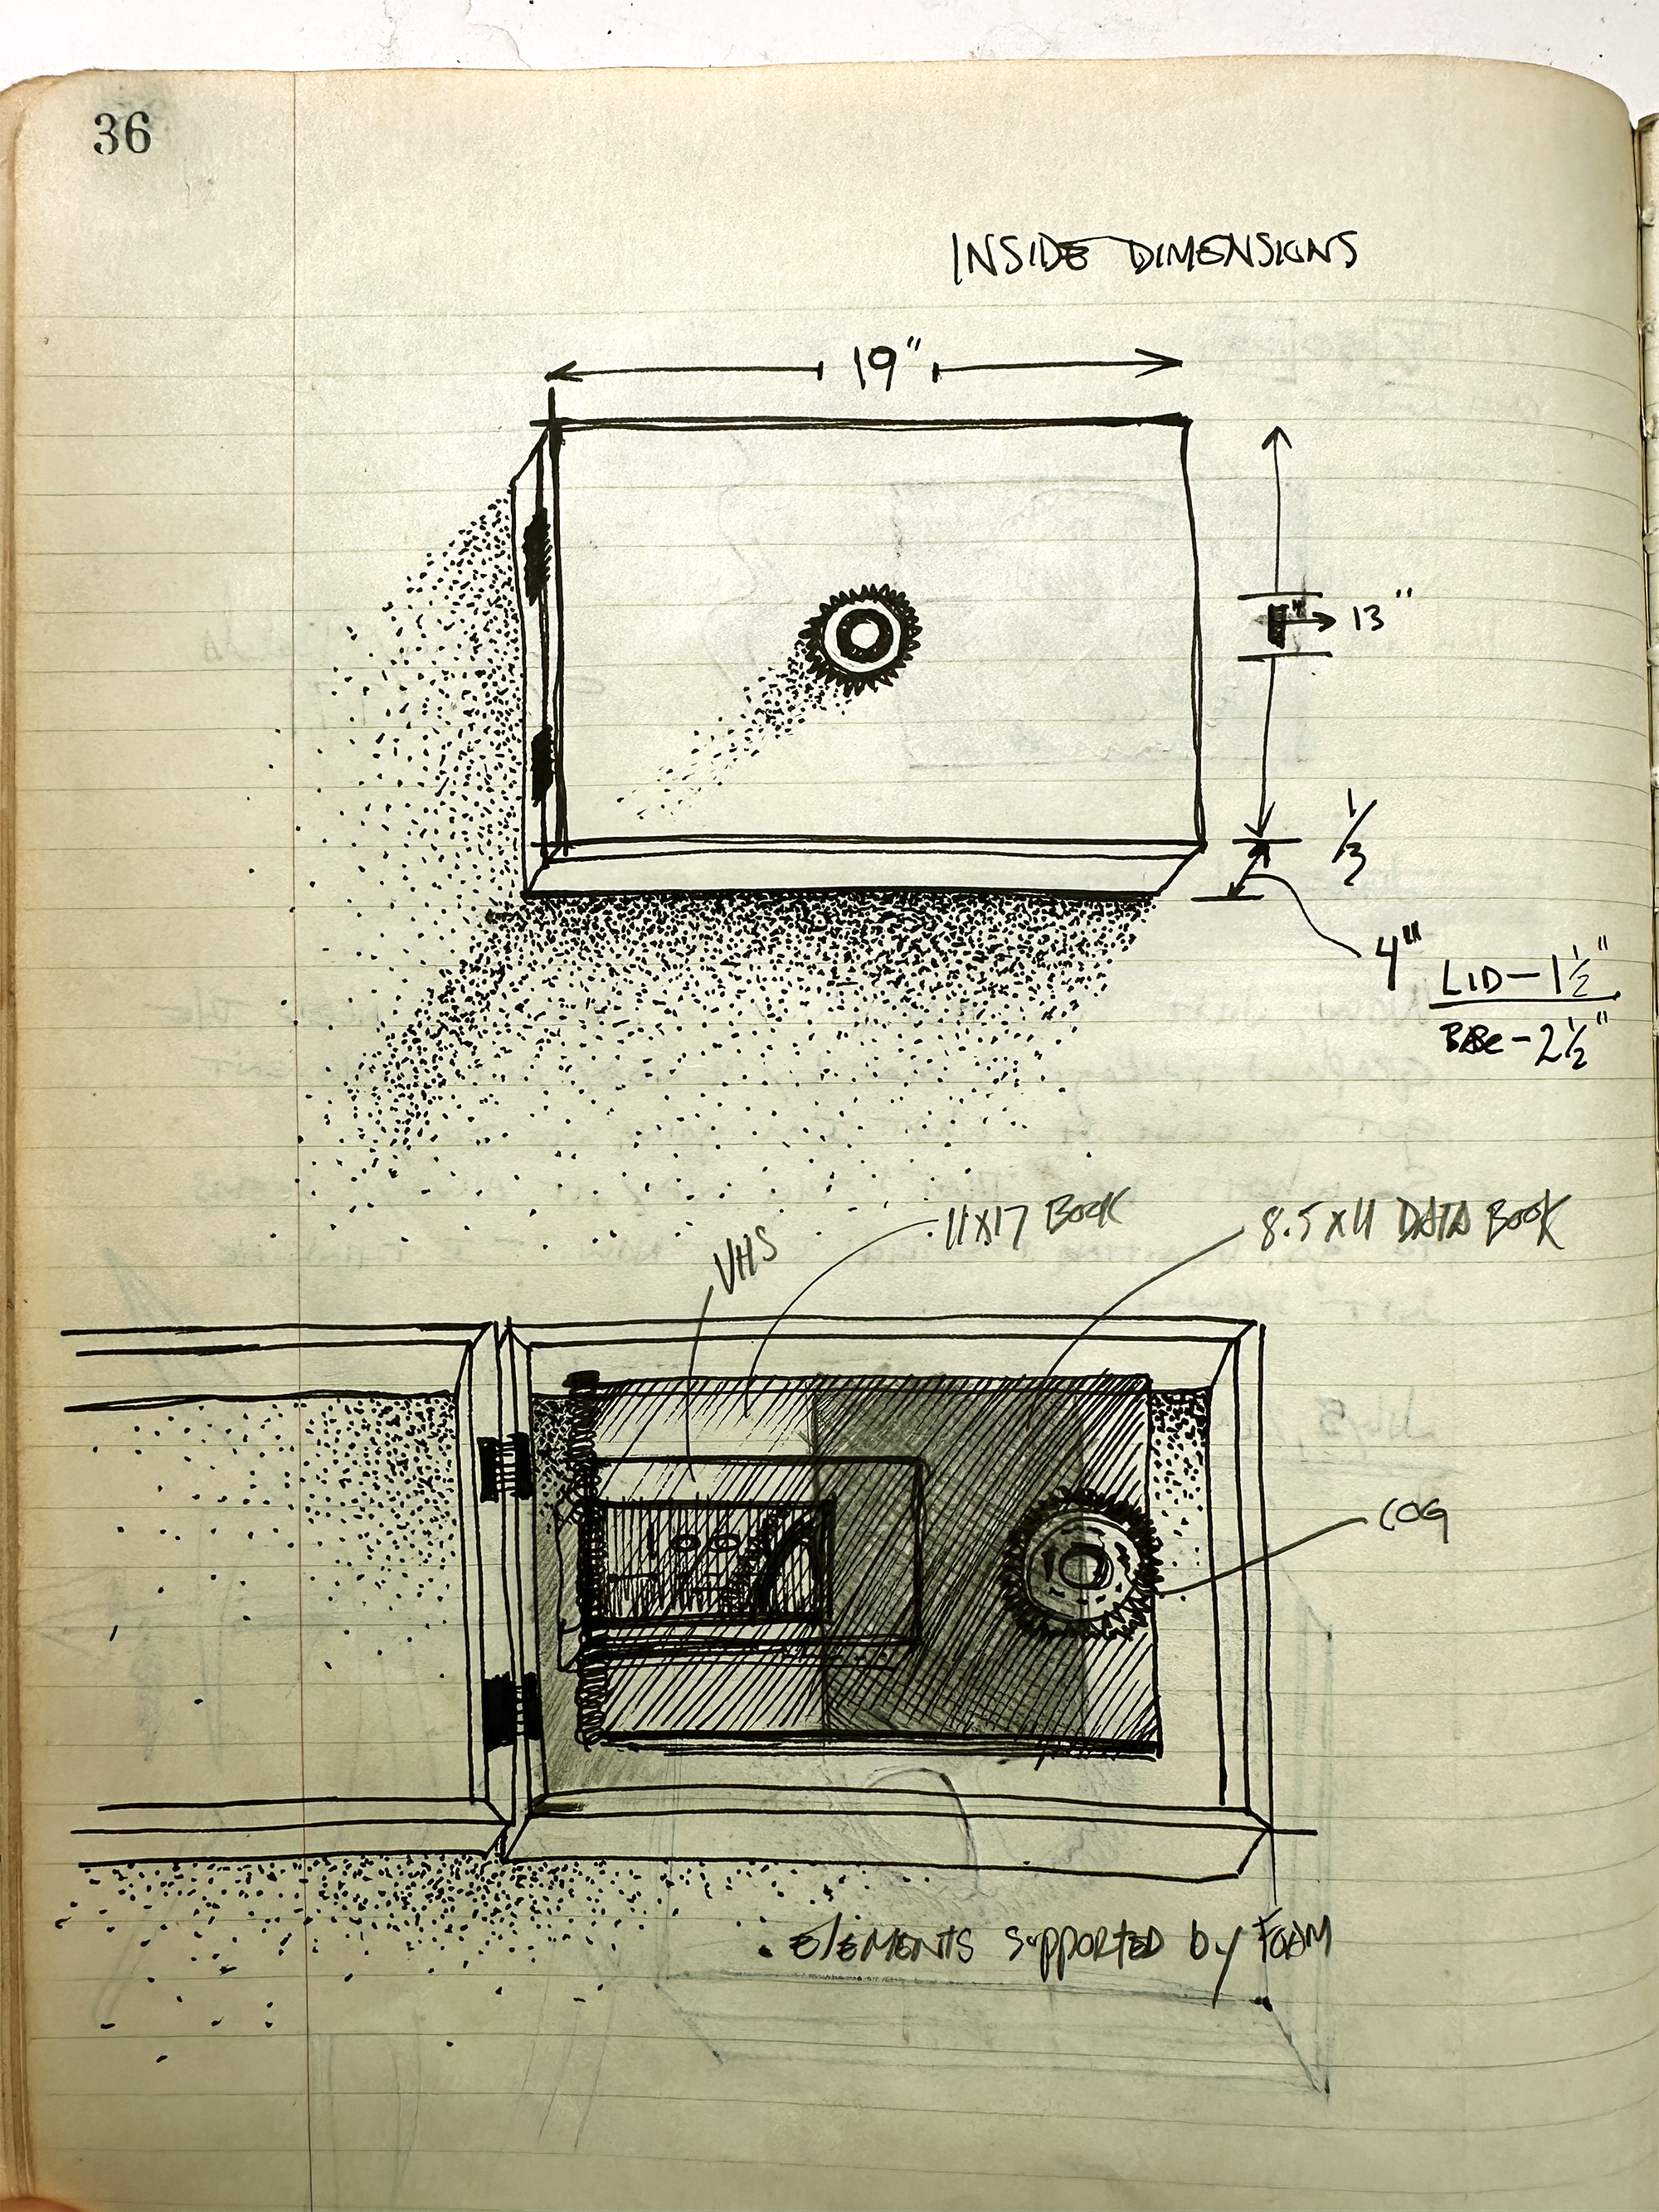 36
INSIDE DIMENSIONS
19"
13"
1/3
4"
LID - 1 1/2"
BASE - 2 1/2"
VHS
11X17 BOOK
8.5 X 11 DATA BOOK
COG
. ELEMENTS SUPPORTED by FOAM